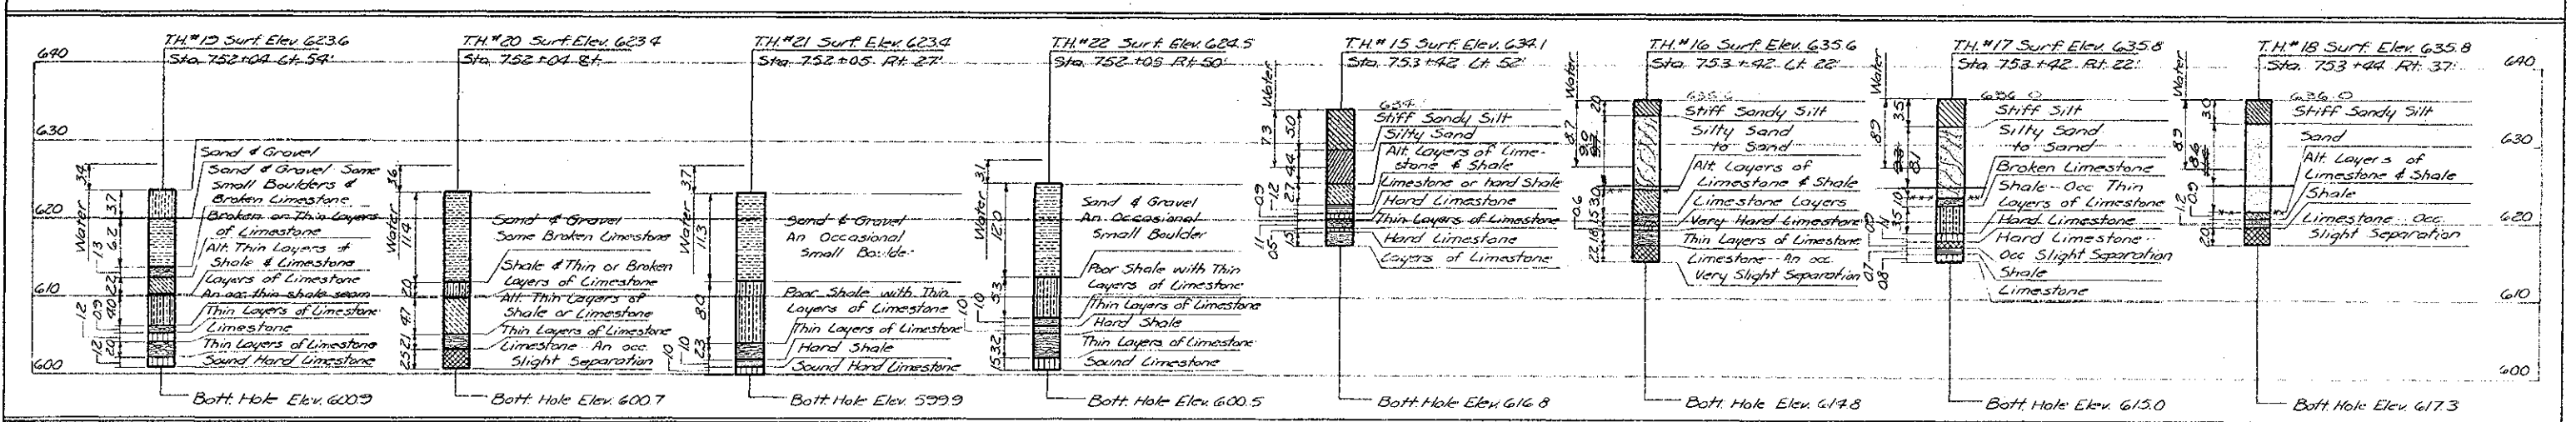 T.H.#19 Surf. Elev. 623.6
Sta. 752+04 Lt. 54'
640
630
620
610
600
Water 3.4
3.7
6.2
1.3
2.2
4.0
0.9
1.2
2.0
1.2
Sand & Gravel
Sand & Gravel Some
Small Boulders &
Broken Limestone
Broken or Thin Layers
of Limestone
Alt. Thin Layers of
Shale & Limestone
Layers of Limestone
An occ. thin shale seam
Thin Layers of Limestone
Limestone
Thin Layers of Limestone
Sound Hard Limestone
Bott. Hole Elev. 600.9
T.H.#20 Surf. Elev. 623.4
Sta. 752+04
Water 3.6
11.4
2.0
4.7
2.1
2.5
Sand & Gravel
Some Broken Limestone
Shale & Thin or Broken
Layers of Limestone
Alt. Thin Layers of
Shale or Limestone
Thin Layers of Limestone
Limestone - An occ.
Slight Separation
Bott. Hole Elev. 600.7
T.H.#21 Surf. Elev. 623.4
Sta. 752+05 Rt. 27'
Water 3.7
11.3
8.0
2.3
1.0
1.0
Sand & Gravel
An Occasional
Small Boulder
Poor Shale with Thin
Layers of Limestone
Thin Layers of Limestone
Hard Shale
Sound Hard Limestone
Bott. Hole Elev. 599.9
T.H.#22 Surf. Elev. 624.5
Sta. 752+05 Rt. 50'
Water 3.1
12.0
5.3
1.0
1.0
3.2
1.5
Sand & Gravel
An Occasional
Small Boulder
Poor Shale with Thin
Layers of Limestone
Thin Layers of Limestone
Hard Shale
Thin Layers of Limestone
Sound Limestone
Bott. Hole Elev. 600.5
T.H.#15 Surf. Elev. 634.1
Sta. 753+42 Lt. 52'
Water
7.3
5.0
4.4
2.7
1.2
0.9
1.1
0.5
1.5
634
Stiff Sandy Silt
Silty Sand
Alt. Layers of Lime-
stone & Shale
Limestone or hard Shale
Hard Limestone
Thin Layers of Limestone
Hard Limestone
Layers of Limestone
Bott. Hole Elev. 616.8
T.H.#16 Surf. Elev. 635.6
Sta. 753+42 Lt. 22'
Water
8.7
2.0
9.0
3.0
1.5
0.6
1.8
2.2
Stiff Sandy Silt
Silty Sand
to Sand
Alt. Layers of
Limestone & Shale
Very Hard Limestone
Thin Layers of Limestone
Limestone - An occ.
Very Slight Separation
Bott. Hole Elev. 614.8
T.H.#17 Surf. Elev. 635.8
Sta. 753+42 Rt. 22'
Water
8.9
3.5
8.1
1.0
3.5
1.1
0.7
0.8
636.0
Stiff Silt
Silty Sand
to Sand
Broken Limestone
Shale - Occ Thin
Layers of Limestone
Hard Limestone
Hard Limestone -
Occ Slight Separation
Shale
Limestone
Bott. Hole Elev. 615.0
T.H.#18 Surf. Elev. 635.8
Sta. 753+44 Rt. 37'
Water
8.9
3.0
8.6
1.2
0.9
2.0
636.0
Stiff Sandy Silt
Sand
Alt. Layers of
Limestone & Shale
Shale
Limestone - Occ.
Slight Separation
Bott. Hole Elev. 617.3
640
630
620
610
600